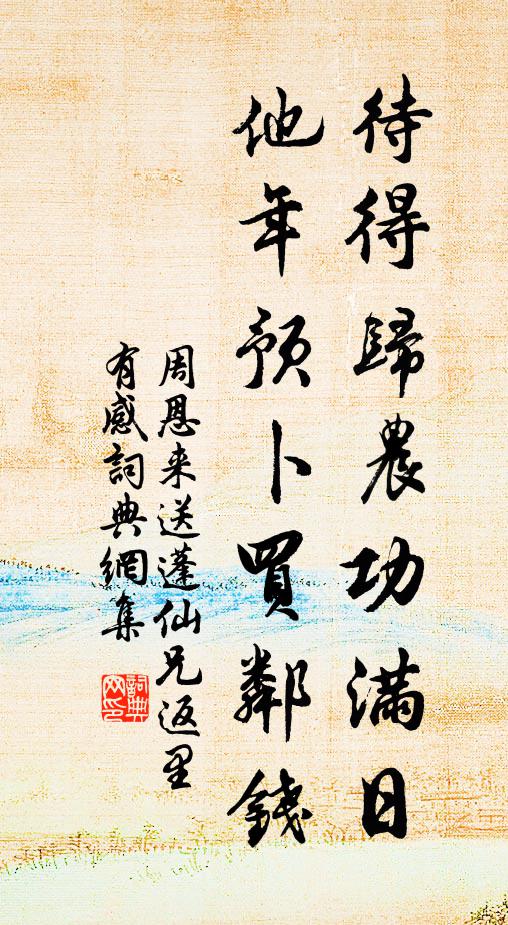 待得歸農功滿日
他年預卜買鄰錢
周恩来送蓬仙兄返里
有感詞典網集
詞典网印